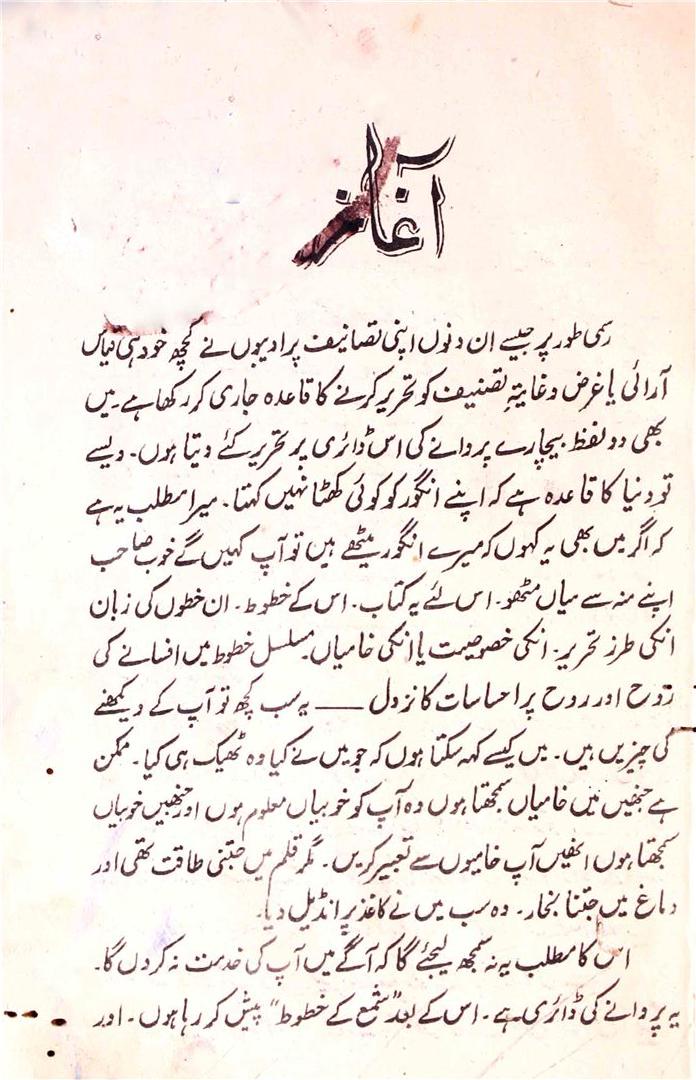 آغاز
رسمی طور پر جیسے اِن دنوں اپنی تصانیف پر ادیبوں نے کچھ خود ہی قیاس
آرائی یا غرض و غایتِ تصنیف کو تحریر کرنے کا قاعدہ جاری کر رکھا ہے۔ میں
بھی دو لفظ بیچارے پروانے کی اس ڈائری پر تحریر کئے دیتا ہوں۔ ویسے
تو دنیا کا قاعدہ ہے کہ اپنے انگور کو کوئی کھٹا نہیں کہتا۔ میرا مطلب یہ ہے
کہ اگر میں بھی یہ کہوں کہ میرے انگور میٹھے ہیں تو آپ کہیں گے خوب صاحب
اپنے منہ سے میاں مٹھو۔ اس لئے یہ کتاب۔ اس کے خطوط۔ ان خطوں کی زبان
انکی طرز تحریر۔ انکی خصوصیت یا انکی خامیاں۔ مسلسل خطوط میں افسانے کی
رُوح اور روح پر احساسات کا نزول —— یہ سب کچھ تو آپ کے دیکھنے
کی چیزیں ہیں۔ میں کیسے کہہ سکتا ہوں کہ جو میں نے کیا وہ ٹھیک ہی کیا۔ ممکن
ہے جنھیں میں خامیاں سمجھتا ہوں وہ آپ کو خوبیاں معلوم ہوں اور جنھیں خوبیاں
سمجھتا ہوں انھیں آپ خامیوں سے تعبیر کریں۔ مگر قلم میں جتنی طاقت تھی اور
دماغ میں جتنا بخار۔ وہ سب میں نے کاغذ پر انڈیل دیا۔
اس کا مطلب یہ نہ سمجھ لیجئے گا کہ آگے میں آپ کی خدمت نہ کروں گا۔
یہ پروانے کی ڈائری ہے۔ اس کے بعد "شمع کے خطوط" پیش کر رہا ہوں۔ اور